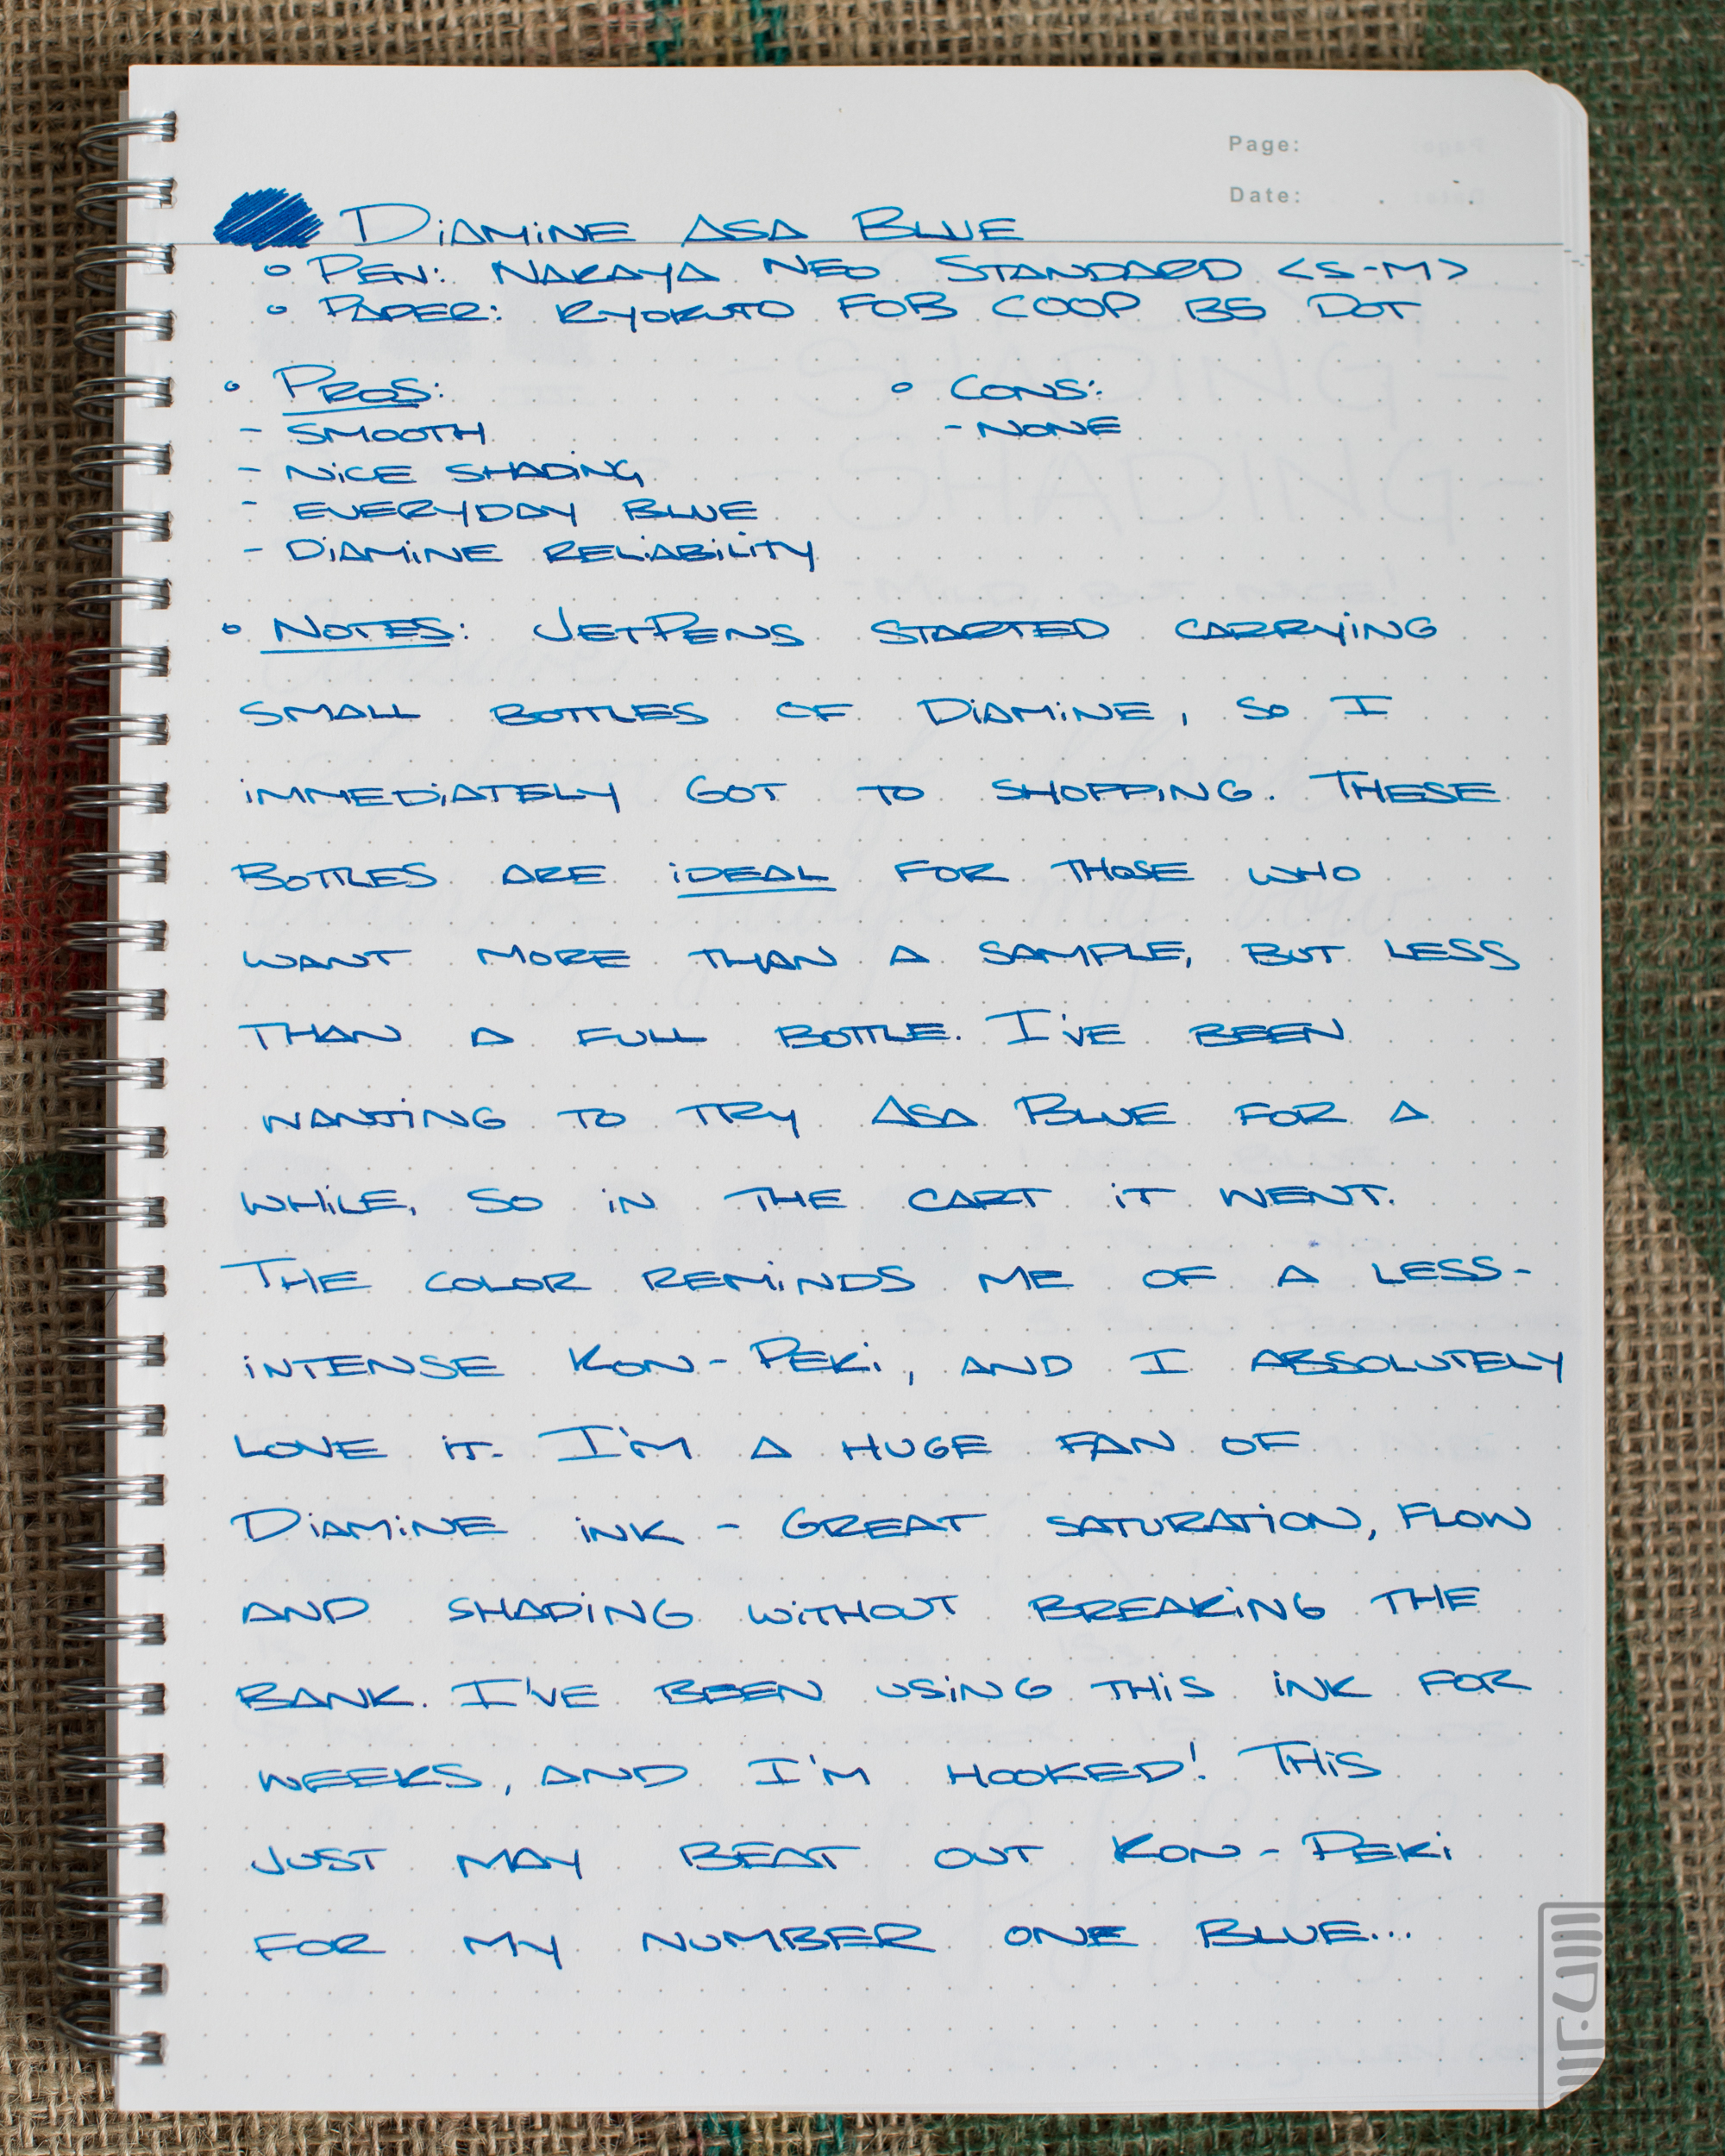 Page:
Date:
DIAMINE ASA BLUE
PEN: NAKAYA NEO STANDARD <S-M>
PAPER: KYOKUTO FOB COOP B5 DOT
PROS:
- SMOOTH
- NICE SHADING
- EVERYDAY BLUE
- DIAMINE RELIABILITY
CONS:
- NONE
NOTES: JETPENS STARTED CARRYING
SMALL BOTTLES OF DIAMINE, SO I
IMMEDIATELY GOT TO SHOPPING. THESE
BOTTLES ARE IDEAL FOR THOSE WHO
WANT MORE THAN A SAMPLE, BUT LESS
THAN A FULL BOTTLE. I'VE BEEN
WANTING TO TRY ASA BLUE FOR A
WHILE, SO IN THE CART IT WENT.
THE COLOR REMINDS ME OF A LESS-
INTENSE KON-PEKI, AND I ABSOLUTELY
LOVE IT. I'M A HUGE FAN OF
DIAMINE INK - GREAT SATURATION, FLOW
AND SHADING WITHOUT BREAKING THE
BANK. I'VE BEEN USING THIS INK FOR
WEEKS, AND I'M HOOKED! THIS
JUST MAY BEAT OUT KON-PEKI
FOR MY NUMBER ONE BLUE...